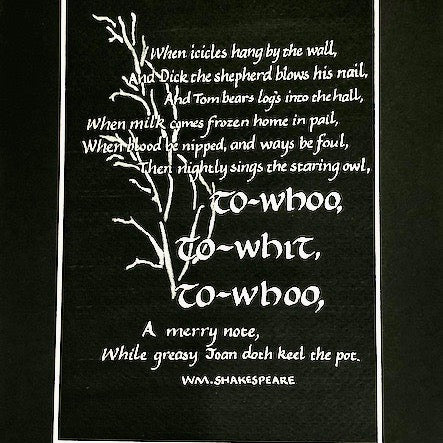 When icicles hang by the wall,
And Dick the shepherd blows his nail,
And Tom bears logs into the hall,
When milk comes frozen home in pail,
When blood be nipped, and ways be foul,
Then nightly sings the staring owl,
To-whoo,
To-whit,
To-whoo,
A merry note,
While greasy Joan doth keel the pot.
WM. SHAKESPEARE